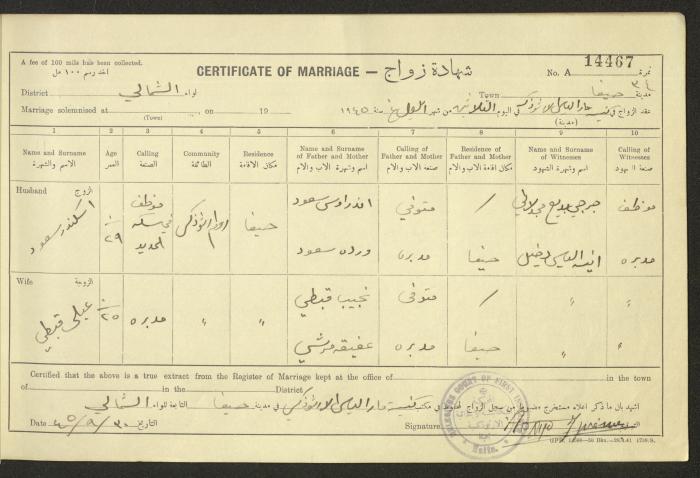 A fee of 100 mils has been collected.
اخذ رسم ١٠٠ مل
CERTIFICATE OF MARRIAGE — شهادة زواج
No. A 14467 نمرة
District لواء الشمالي
Town حيفا مدينة
Marriage solemnised at , on 19
(Town)
عقد الزواج في كنيسة مار الياس في اليوم الثلاثين من شهر سنة ١٩٤٥
(مدينة)
1 2 3 4 5 6 7 8 9 10
Name and Surname الاسم والشهرة
Age العمر
Calling الصنعة
Community الطائفة
Residence مكان الاقامة
Name and Surname of Father and Mother اسم وشهرة الاب والام
Calling of Father and Mother صنعة الاب والام
Residence of Father and Mother مكان اقامة الاب والام
Name and Surname of Witnesses اسم وشهرة الشهود
Calling of Witnesses صنعة الشهود
Husband الزوج
اسكندر سعود
٢٩ سنة
موظف في سكة الحديد
روم ارثوذكس
حيفا
اندراوس سعود
متوفي
/
جرجي
موظف
ورده سعود
مدبره
حيفا
انيسه الياس دخيل
مدبره
Wife الزوجة
قبطي
٢٥ سنة
مدبره
〃
〃
نجيب قبطي
متوفي
/
〃
〃
عفيفه
مدبره
حيفا
〃
〃
Certified that the above is a true extract from the Register of Marriage kept at the office of in the town
of in the District
اشهد بان ما ذكر اعلاه مستخرج من سجل الزواج المحفوظ في مكتب كنيسة مار الياس الارثوذكس في مدينة حيفا التابعة للواء الشمالي
Date ٣٠/٩/٤٥ التاريخ
Signature
Haifa.